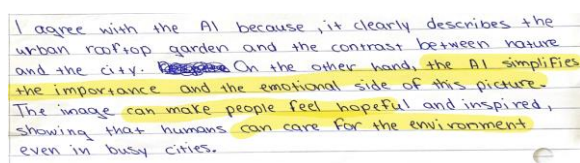 I agree with the AI because, it clearly describes the
urban rooftop garden and the contrast between nature
and the city. On the other hand, the AI simplifies
the importance and the emotional side of this picture.
The image can make people feel hopeful and inspired,
showing that humans can care for the environment
even in busy cities.